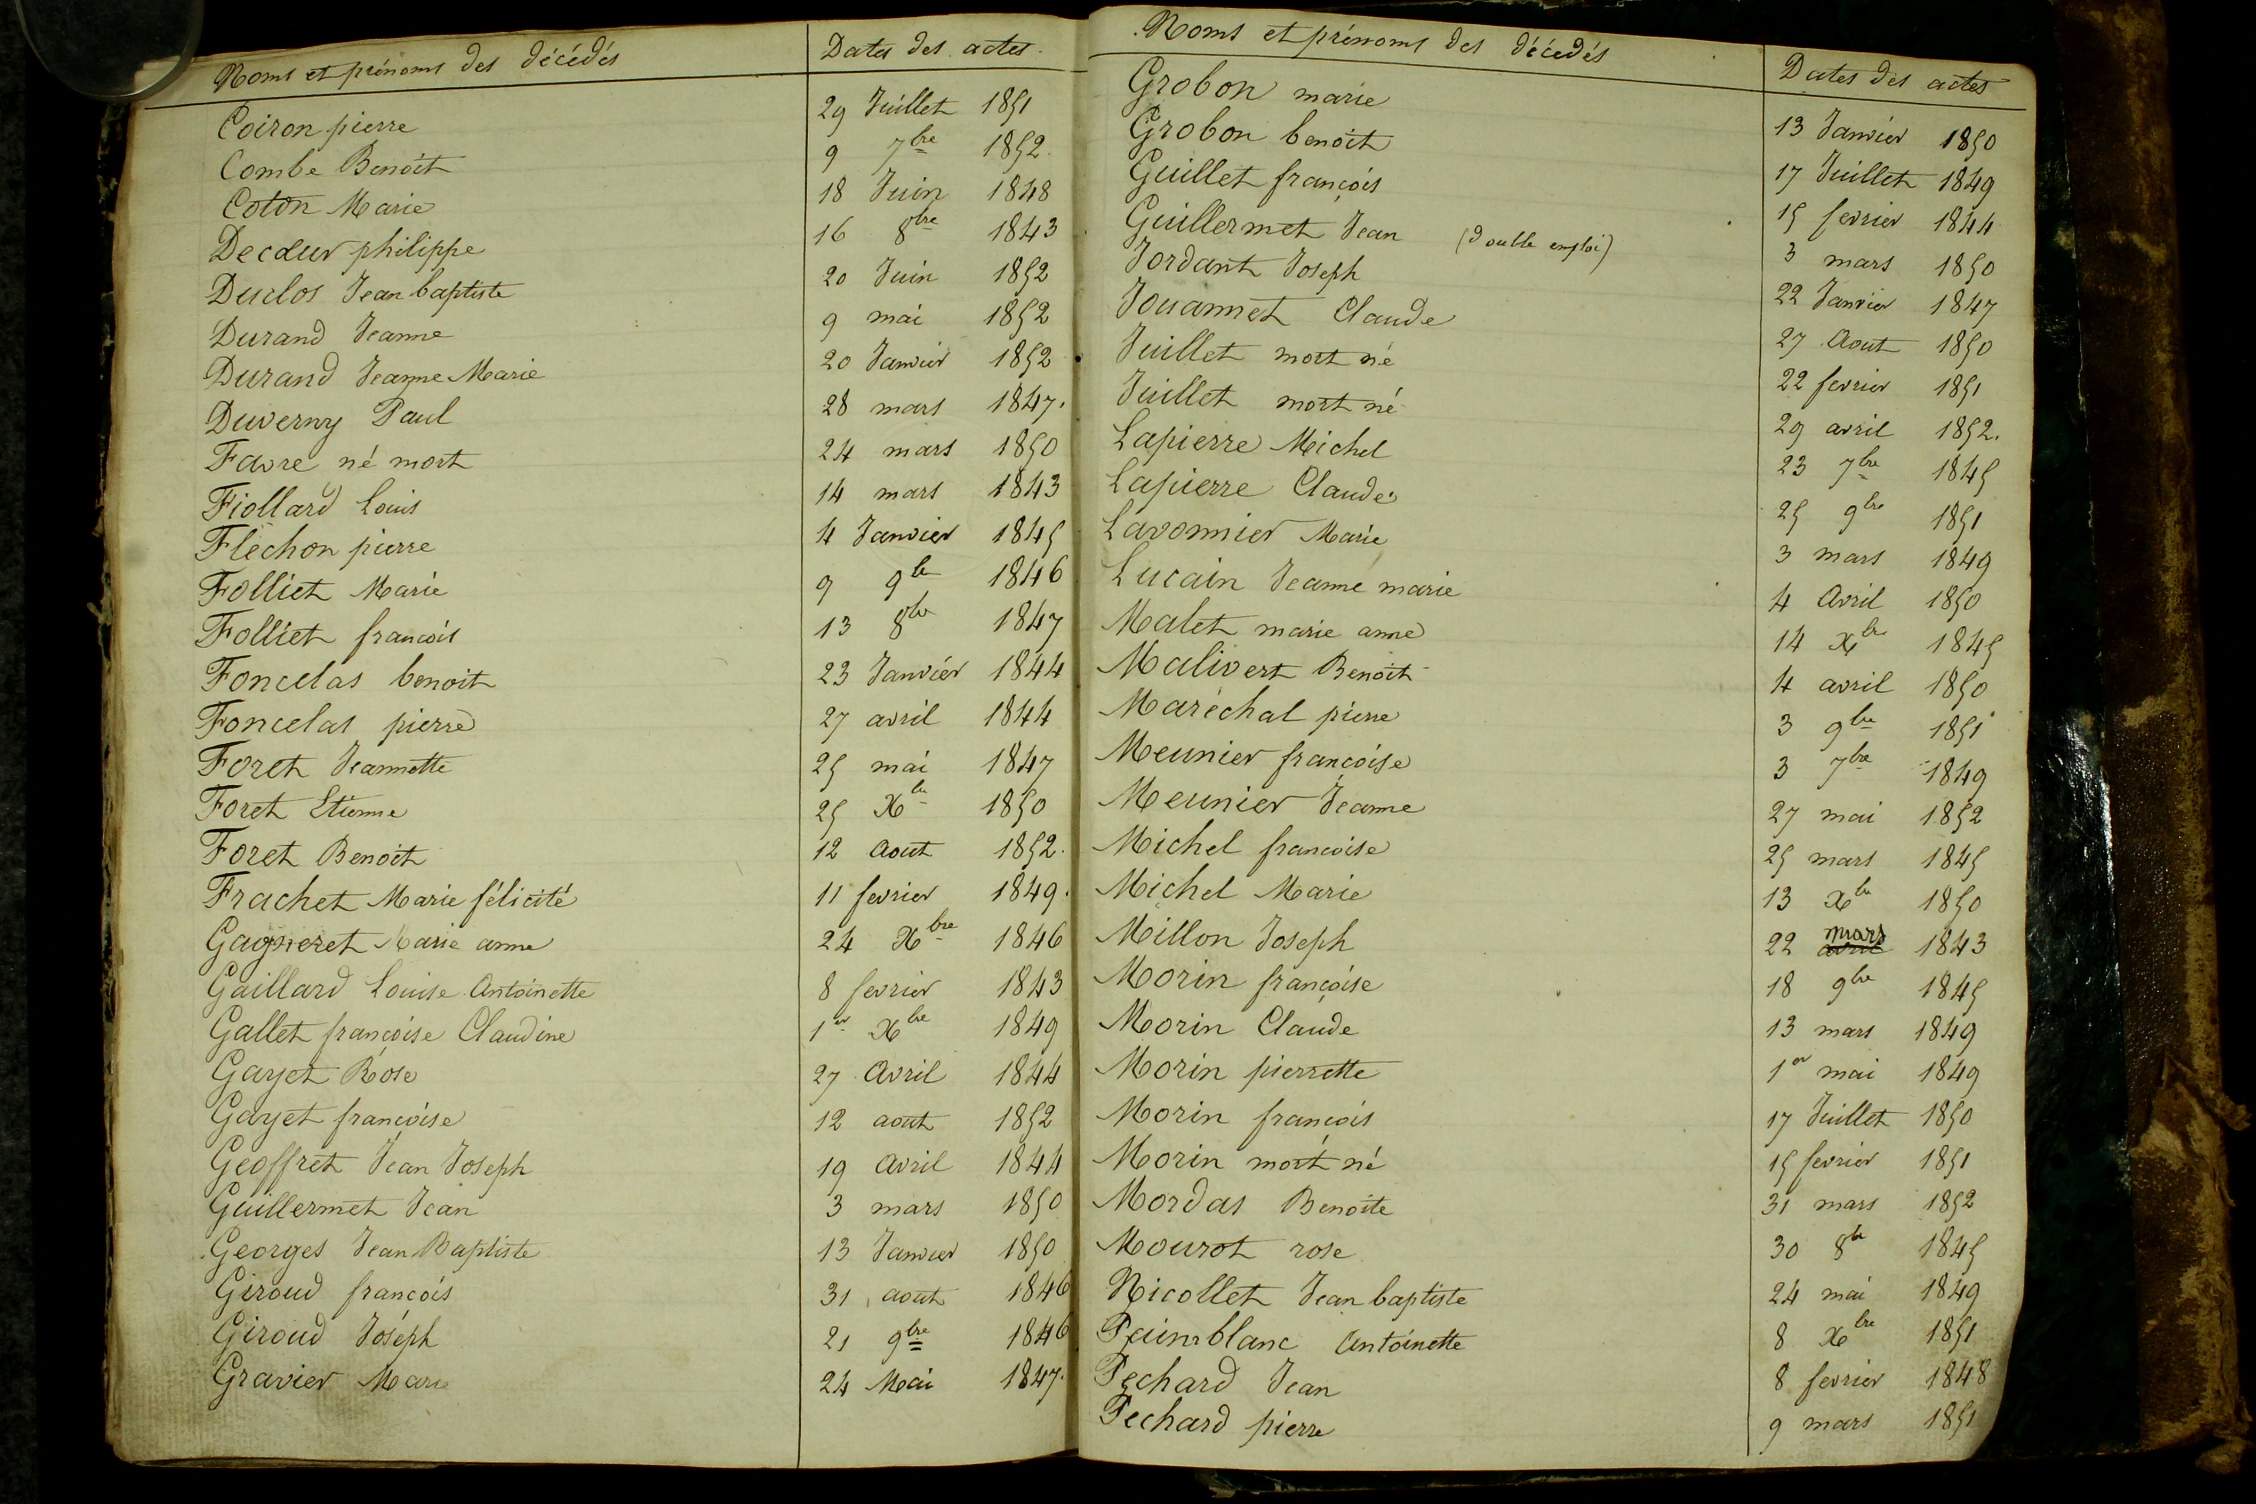 Noms et prénoms des décédés Dates des actes
Coiron pierre 29 Juillet 1851
Combe Benoit 9 7bre 1852
Coton Marie 18 Juin 1848
Decœur philippe 16 8bre 1843
Duclos Jean baptiste 20 Juin 1852
Durand Jeanne 9 mai 1852
Durand Jeanne Marie 20 Janvier 1852
Duverny Paul 28 mars 1847.
Favre né mort 24 mars 1850
Fiollard Louis 14 mars 1843
Flechon pierre 4 Janvier 1845
Folliet Marie 9 9bre 1846
Folliet francois 13 8bre 1847
Foncelas benoit 23 Janvier 1844
Foncelas pierre 27 avril 1844
Foret Jeannette 25 mai 1847
Foret Etienne 25 Xbre 1850
Foret Benoit 12 Aout 1852.
Frachet Marie félicité 11 fevrier 1849.
Gagneret Marie anne 24 Xbre 1846
Gaillard Louise Antoinette 8 fevrier 1843
Gallet françoise Claudine 1er Xbre 1849
Gayet Rose 27 Avril 1844
Gayet françoise 12 aout 1852
Geoffret Jean Joseph 19 Avril 1844
Guillermet Jean 3 mars 1850
Georges Jean Baptiste 13 Janvier 1850
Giroud françois 31 aout 1846
Giroud Joseph 21 9bre 1846
Gravier Marie 24 Mai 1847.
Noms et prénoms des décédés Dates des actes
Grobon marie 13 Janvier 1850
Grobon benoit 17 Juillet 1849
Guillet françois 15 fevrier 1844
Guillermet Jean (double emploi) 3 mars 1850
Jordant Joseph 22 Janvier 1847
Jouannet Claude 27 Aout 1850
Juillet mort né 22 fevrier 1851
Juillet mort né 29 avril 1852.
Lapierre Michel 23 7bre 1845
Lapierre Claude 25 9bre 1851
Lavonnier Marie 3 mars 1849
Lucain Jeanne marie 4 Avril 1850
Malet marie anne 14 Xbre 1845
Malivert Benoit 4 avril 1850
Maréchal pierre 3 9bre 1851
Meunier françoise 3 7bre 1849
Meunier Jeanne 27 mai 1852
Michel francoise 25 mars 1845
Michel Marie 13 Xbre 1850
Millon Joseph 22 avril mars 1843
Morin françoise 18 9bre 1845
Morin Claude 13 mars 1849
Morin pierrette 1er mai 1849
Morin françois 17 Juillet 1850
Morin mort né 15 fevrier 1851
Mordas Benoite 31 mars 1852
Mourot rose 30 8bre 1845
Nicollet Jean baptiste 24 mai 1849
Painblanc Antoinette 8 Xbre 1851
Pechard Jean 8 fevrier 1848
Pechard pierre 9 mars 1851